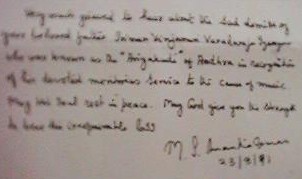 Very much grieved to hear about the sad demise of
your beloved father Sriman Vinjamuri Varadaraja Iyengar
who was known as the "           " of Andhra in recognition
of his devoted meritorious Service to the cause of music.
May his soul rest in peace. May God give you the strength
to bear the irreparable loss
M. S.
23/8/91